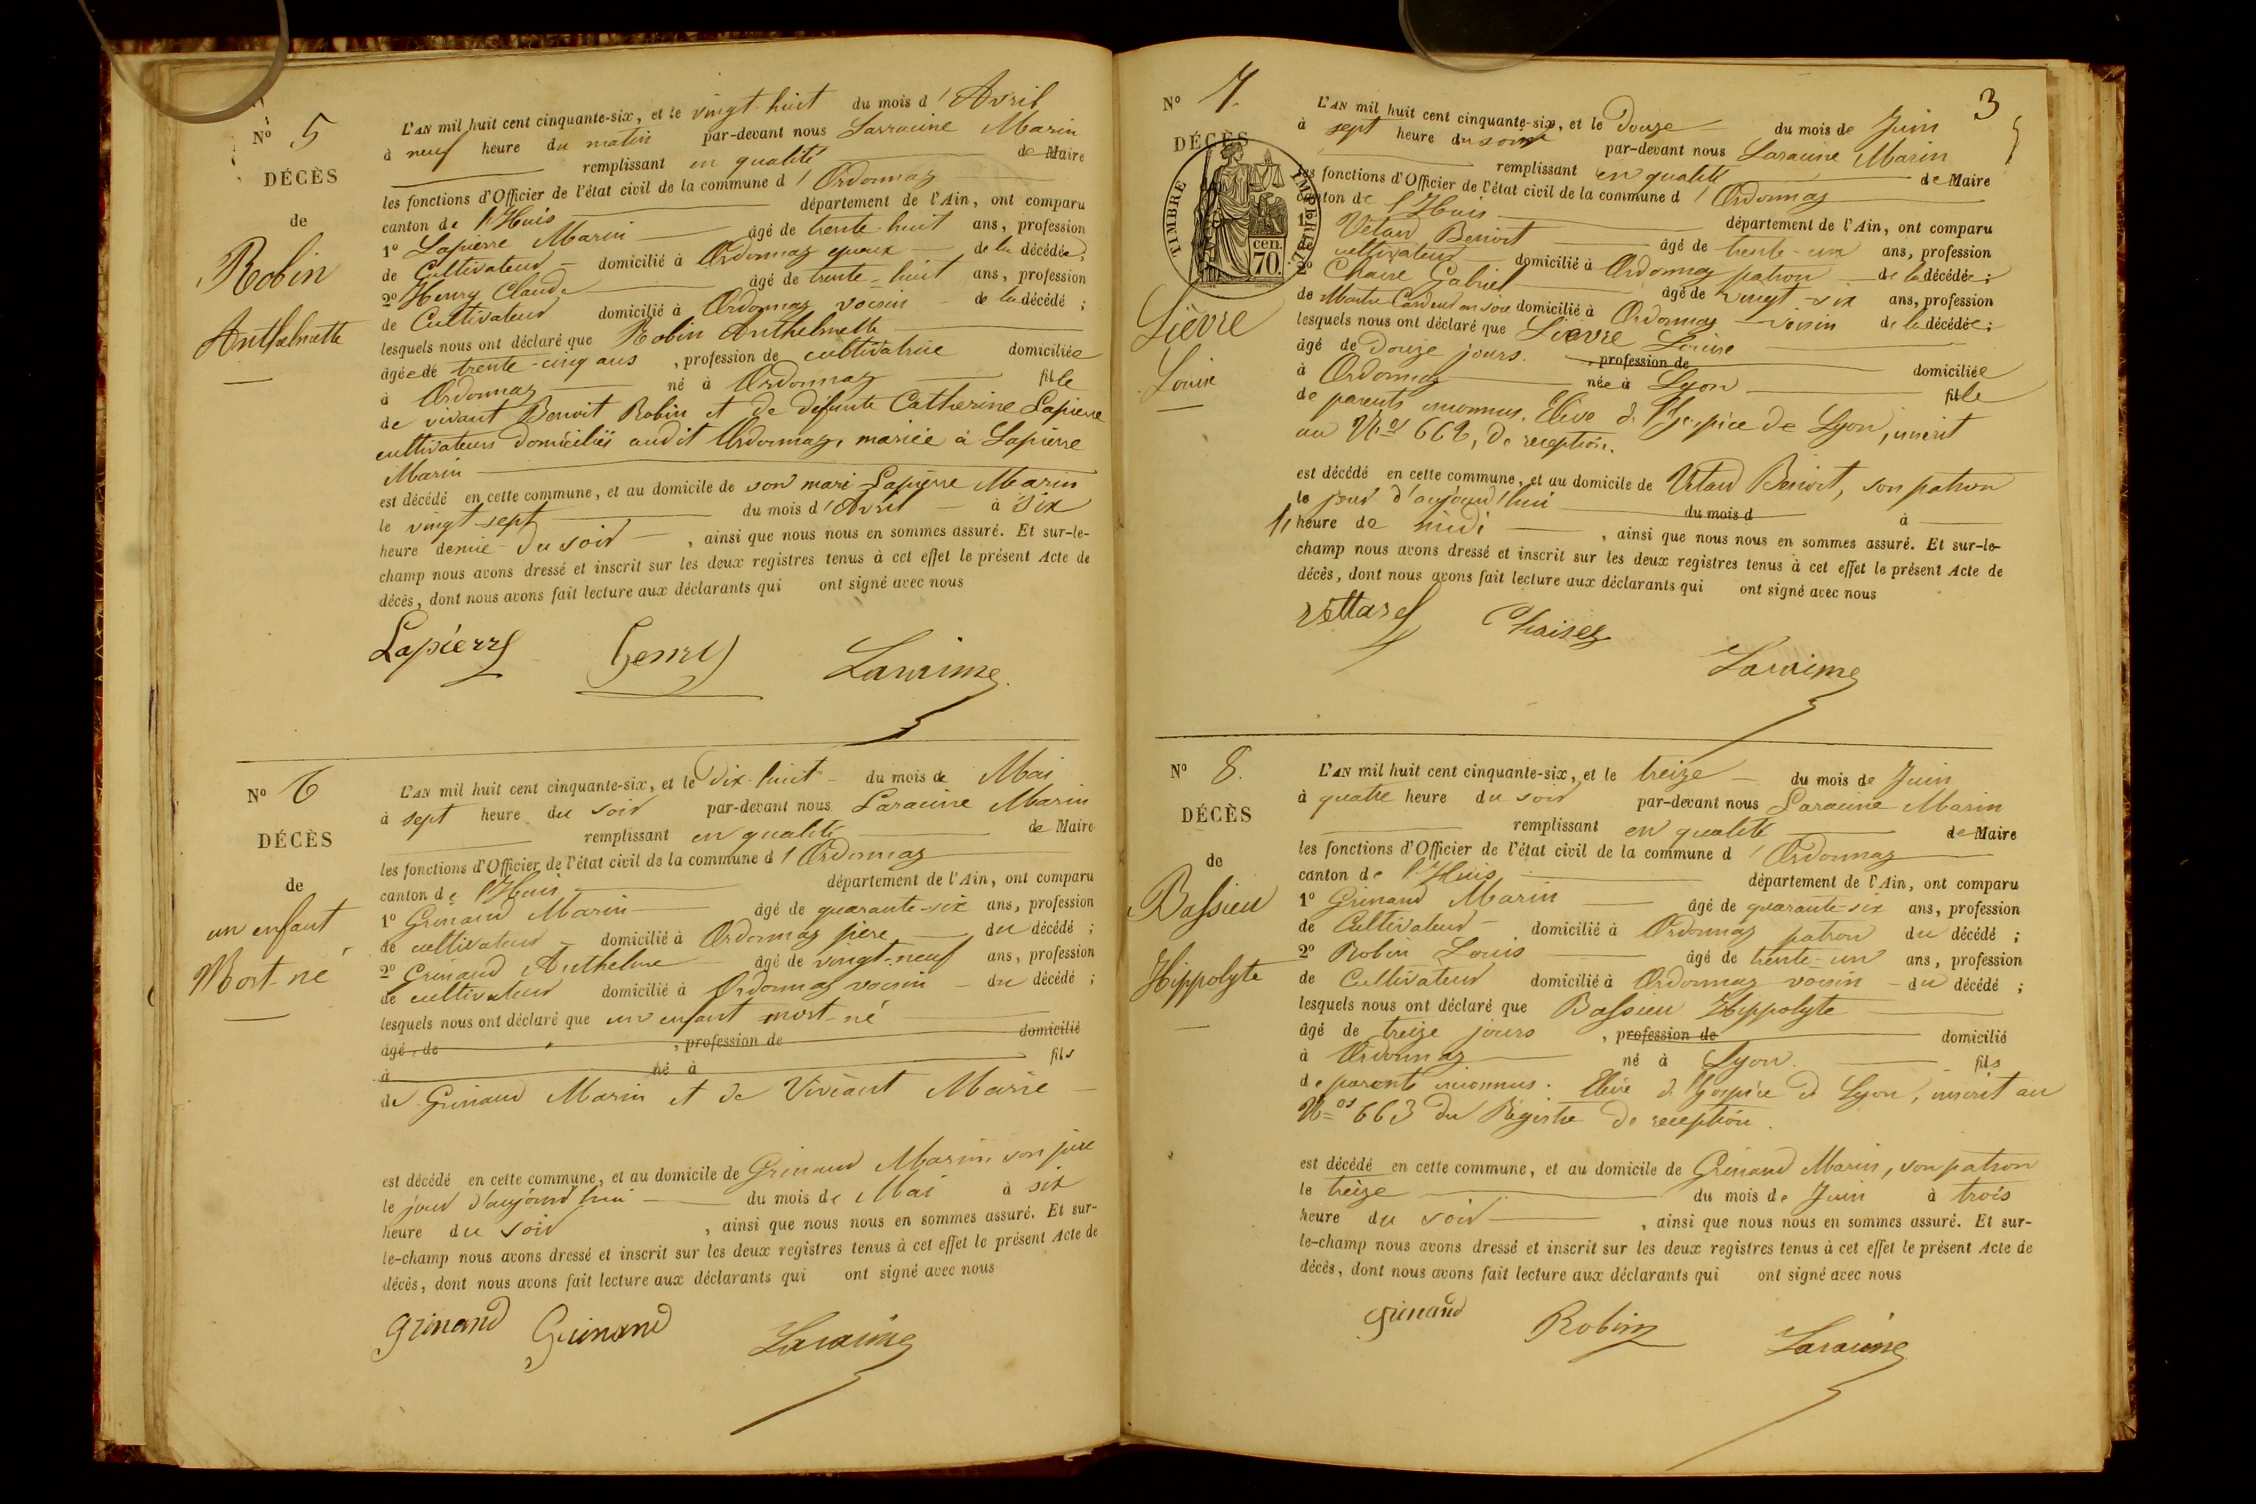 N° 5
DÉCÈS
de
Robin
Anthelmette
L'AN mil huit cent cinquante-six, et le vingt-huit du mois d'Avril
à neuf heure du matin par-devant nous Larraime Marin
remplissant en qualité de Maire
les fonctions d'Officier de l'état civil de la commune d'Ordonnaz
canton de l'Huis département de l'Ain, ont comparu
1° Lapierre Marin âgé de trente-huit ans, profession
de Cultivateur domicilié à Ordonnaz epoux de la décédée;
2° Henry Claude âgé de trente-huit ans, profession
de Cultivateur domicilié à Ordonnaz voisin de la décédé;
lesquels nous ont déclaré que Robin Anthelmette
âgée de trente-cinq ans, profession de cultivatrice domiciliée
à Ordonnaz né à Ordonnaz fille
de vivant Benoit Robin et de défunte Catherine Lapierre
cultivateurs domiciliés audit Ordonnaz, mariée à Lapierre
Marin
est décédé en cette commune, et au domicile de son mari Lapierre Marin
le vingt-sept du mois d'Avril à six
heure demie du soir, ainsi que nous nous en sommes assuré. Et sur-le-
champ nous avons dressé et inscrit sur les deux registres tenus à cet effet le présent Acte de
décès, dont nous avons fait lecture aux déclarants qui ont signé avec nous
Lapierre Henry Laraime
N° 6
DÉCÈS
de
un enfant
Mort-né
L'AN mil huit cent cinquante-six, et le Dix-huit du mois de Mai
à sept heure du soir par-devant nous Laraime Marin
remplissant en qualité de Maire
les fonctions d'Officier de l'état civil de la commune d'Ordonnaz
canton de l'Huis département de l'Ain, ont comparu
1° Grinand Marin âgé de quarante-six ans, profession
de cultivateur domicilié à Ordonnaz pere du décédé;
2° Grinand Anthelme âgé de vingt-neuf ans, profession
de cultivateur domicilié à Ordonnaz voisin du décédé;
lesquels nous ont déclaré que un enfant mort-né
âgé de, profession de domicilié
à né à fils
de Grinand Marin et de Viviant Marie
est décédé en cette commune, et au domicile de Grinand Marin son père
le jour d'aujourd'hui du mois de Mai à six
heure du soir, ainsi que nous nous en sommes assuré. Et sur-
le-champ nous avons dressé et inscrit sur les deux registres tenus à cet effet le présent Acte de
décès, dont nous avons fait lecture aux déclarants qui ont signé avec nous
Grinand Grinand Laraime
3
N° 7.
DÉCÈS
TIMBRE IMPERIAL
cen. 70.
Lièvre
Louise
L'AN mil huit cent cinquante-six, et le Douze du mois de Juin
à sept heure du soir par-devant nous Laraime Marin
remplissant en qualité de Maire
les fonctions d'Officier de l'état civil de la commune d'Ordonnaz
canton de l'Huis département de l'Ain, ont comparu
1° Vétard Benoit âgé de trente-un ans, profession
cultivateur domicilié à Ordonnaz patron de la décédée;
2° Gabriel âgé de vingt-six ans, profession
de domicilié à Ordonnaz voisin de la décédée;
lesquels nous ont déclaré que Lièvre Louise
âgé de douze jours. profession de domiciliée
à Ordonnaz née à Lyon fille
de parents inconnus. Elève de l'hospice de Lyon, inscrit
au N.os 662, de reception.
est décédé en cette commune, et au domicile de Vétard Benoit, son patron
le jour d'aujourd'hui du mois d à
heure de midi, ainsi que nous nous en sommes assuré. Et sur-le-
champ nous avons dressé et inscrit sur les deux registres tenus à cet effet le présent Acte de
décès, dont nous avons fait lecture aux déclarants qui ont signé avec nous
Vettard Chaisez Laraime
N° 8.
DÉCÈS
de
Bassieu
Hippolyte
L'AN mil huit cent cinquante-six, et le treize du mois de Juin
à quatre heure du soir par-devant nous Laraime Marin
remplissant en qualité de Maire
les fonctions d'Officier de l'état civil de la commune d'Ordonnaz
canton de l'Huis département de l'Ain, ont comparu
1° Grinand Marin âgé de quarante-six ans, profession
de Cultivateur domicilié à Ordonnaz patron du décédé;
2° Robin Louis âgé de trente-un ans, profession
de Cultivateur domicilié à Ordonnaz voisin du décédé;
lesquels nous ont déclaré que Bassieu Hippolyte
âgé de treize jours, profession de domicilié
à Ordonnaz né à Lyon. fils
de parents inconnus. Elève de l'hospice de Lyon, inscrit au
N.os 663 du Régistre de reception.
est décédé en cette commune, et au domicile de Grinand Marin, son patron
le treize du mois de Juin à trois
heure du soir, ainsi que nous nous en sommes assuré. Et sur-
le-champ nous avons dressé et inscrit sur les deux registres tenus à cet effet le présent Acte de
décès, dont nous avons fait lecture aux déclarants qui ont signé avec nous
Grinand Robin Laraime